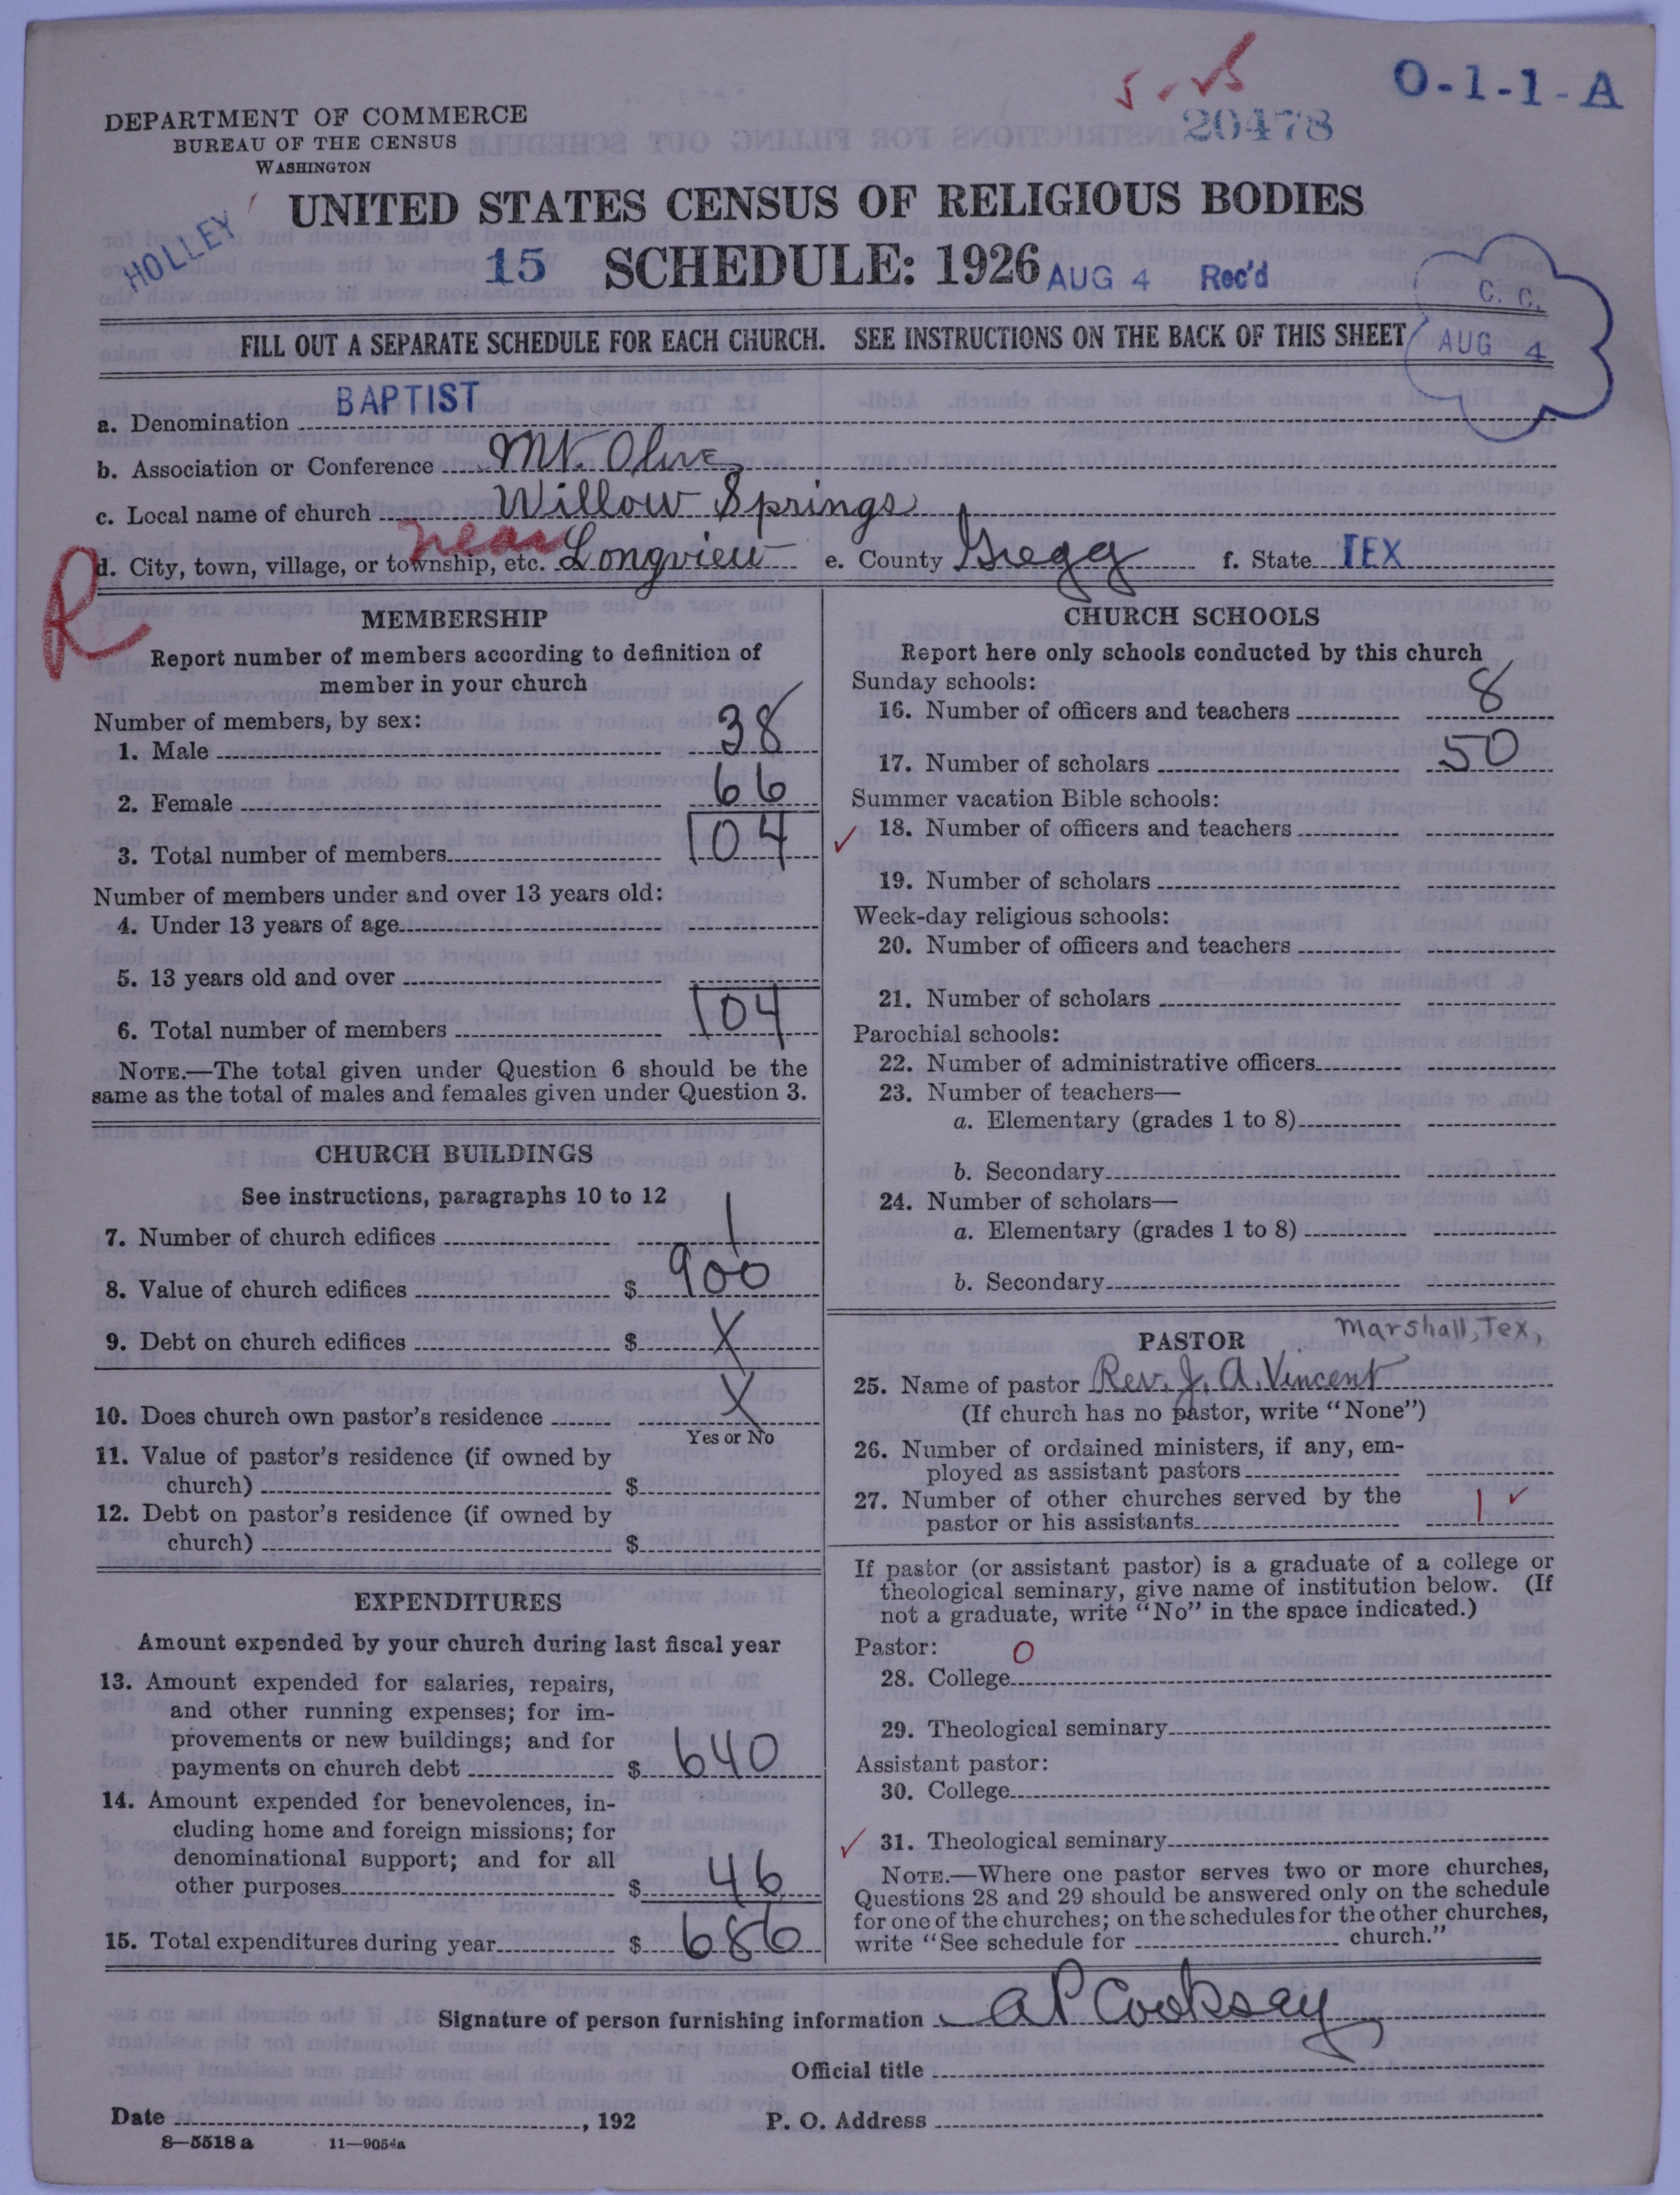 5-15
20478
O-1-1-A
DEPARTMENT OF COMMERCE
BUREAU OF THE CENSUS
WASHINGTON
UNITED STATES CENSUS OF RELIGIOUS BODIES
HOLLEY
15 SCHEDULE: 1926 AUG 4 Rec'd
C. C.
AUG 4
FILL OUT A SEPARATE SCHEDULE FOR EACH CHURCH. SEE INSTRUCTIONS ON THE BACK OF THIS SHEET
a. Denomination BAPTIST
b. Association or Conference Mt. Olive
c. Local name of church Willow Springs
R
d. City, town, village, or township, etc. near Longview e. County Gregg f. State TEX
MEMBERSHIP
Report number of members according to definition of
member in your church
Number of members, by sex:
1. Male 38
2. Female 66
3. Total number of members 104
Number of members under and over 13 years old:
4. Under 13 years of age
5. 13 years old and over
6. Total number of members 104
NOTE.—The total given under Question 6 should be the
same as the total of males and females given under Question 3.
CHURCH BUILDINGS
See instructions, paragraphs 10 to 12
7. Number of church edifices 1
8. Value of church edifices $ 900
9. Debt on church edifices $ X
10. Does church own pastor's residence X
Yes or No
11. Value of pastor's residence (if owned by
church) $
12. Debt on pastor's residence (if owned by
church) $
EXPENDITURES
Amount expended by your church during last fiscal year
13. Amount expended for salaries, repairs,
and other running expenses; for im-
provements or new buildings; and for
payments on church debt $ 640
14. Amount expended for benevolences, in-
cluding home and foreign missions; for
denominational support; and for all
other purposes $ 46
15. Total expenditures during year $ 686
CHURCH SCHOOLS
Report here only schools conducted by this church
Sunday schools:
16. Number of officers and teachers 8
17. Number of scholars 50
Summer vacation Bible schools:
18. Number of officers and teachers
19. Number of scholars
Week-day religious schools:
20. Number of officers and teachers
21. Number of scholars
Parochial schools:
22. Number of administrative officers
23. Number of teachers—
a. Elementary (grades 1 to 8)
b. Secondary
24. Number of scholars—
a. Elementary (grades 1 to 8)
b. Secondary
PASTOR Marshall, Tex,
25. Name of pastor Rev. J. A. Vincent
(If church has no pastor, write "None")
26. Number of ordained ministers, if any, em-
ployed as assistant pastors
27. Number of other churches served by the
pastor or his assistants 1
If pastor (or assistant pastor) is a graduate of a college or
theological seminary, give name of institution below. (If
not a graduate, write "No" in the space indicated.)
Pastor:
28. College 0
29. Theological seminary
Assistant pastor:
30. College
31. Theological seminary
NOTE.—Where one pastor serves two or more churches,
Questions 28 and 29 should be answered only on the schedule
for one of the churches; on the schedules for the other churches,
write "See schedule for church."
Signature of person furnishing information A P Cooksey
Official title
Date , 192 P. O. Address
8—5518 a 11—9054a